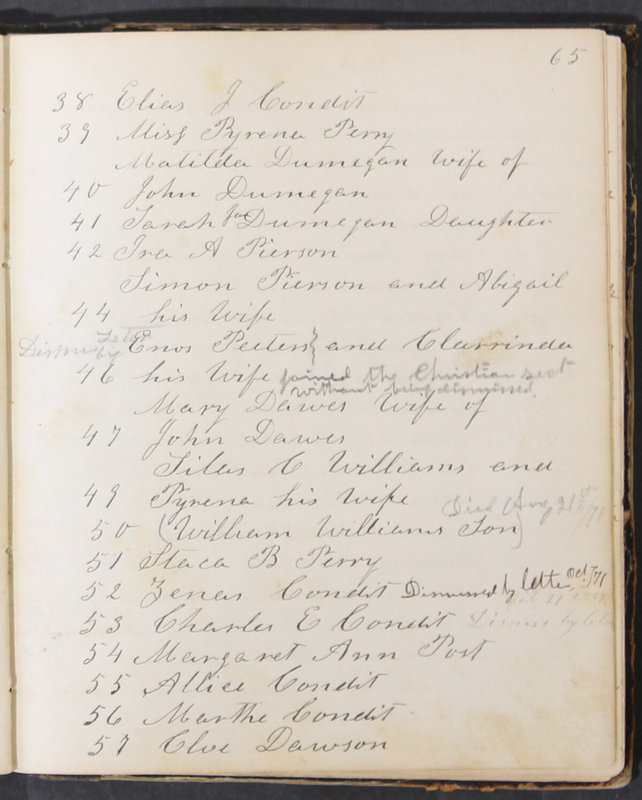 65
38 Elias J Condit
39 Miss Pyrena Perry
Matilda Dumegan Wife of
40 John Dumegan
41 Sarah Dumegan Daughter
42 Ira A Pierson
Simon Pierson and Abigail
44 his Wife
Letter
by Enos Peeters } and Clarrinda
46 his Wife joined the Christian sect
without being dismissed
Mary Dawes Wife of
47 John Dawes
Silas C Williams and
49 Pyrena his Wife Died Aug 21st /71
50 (William Williams Son)
51 Staca B Perry
52 Zenas Condit Dismissed by letter, Oct /71
53 Charles E Condit Dismiss by
54 Margaret Ann Post
55 Allice Condit
56 Marthe Condit
57 Cloe Dawson